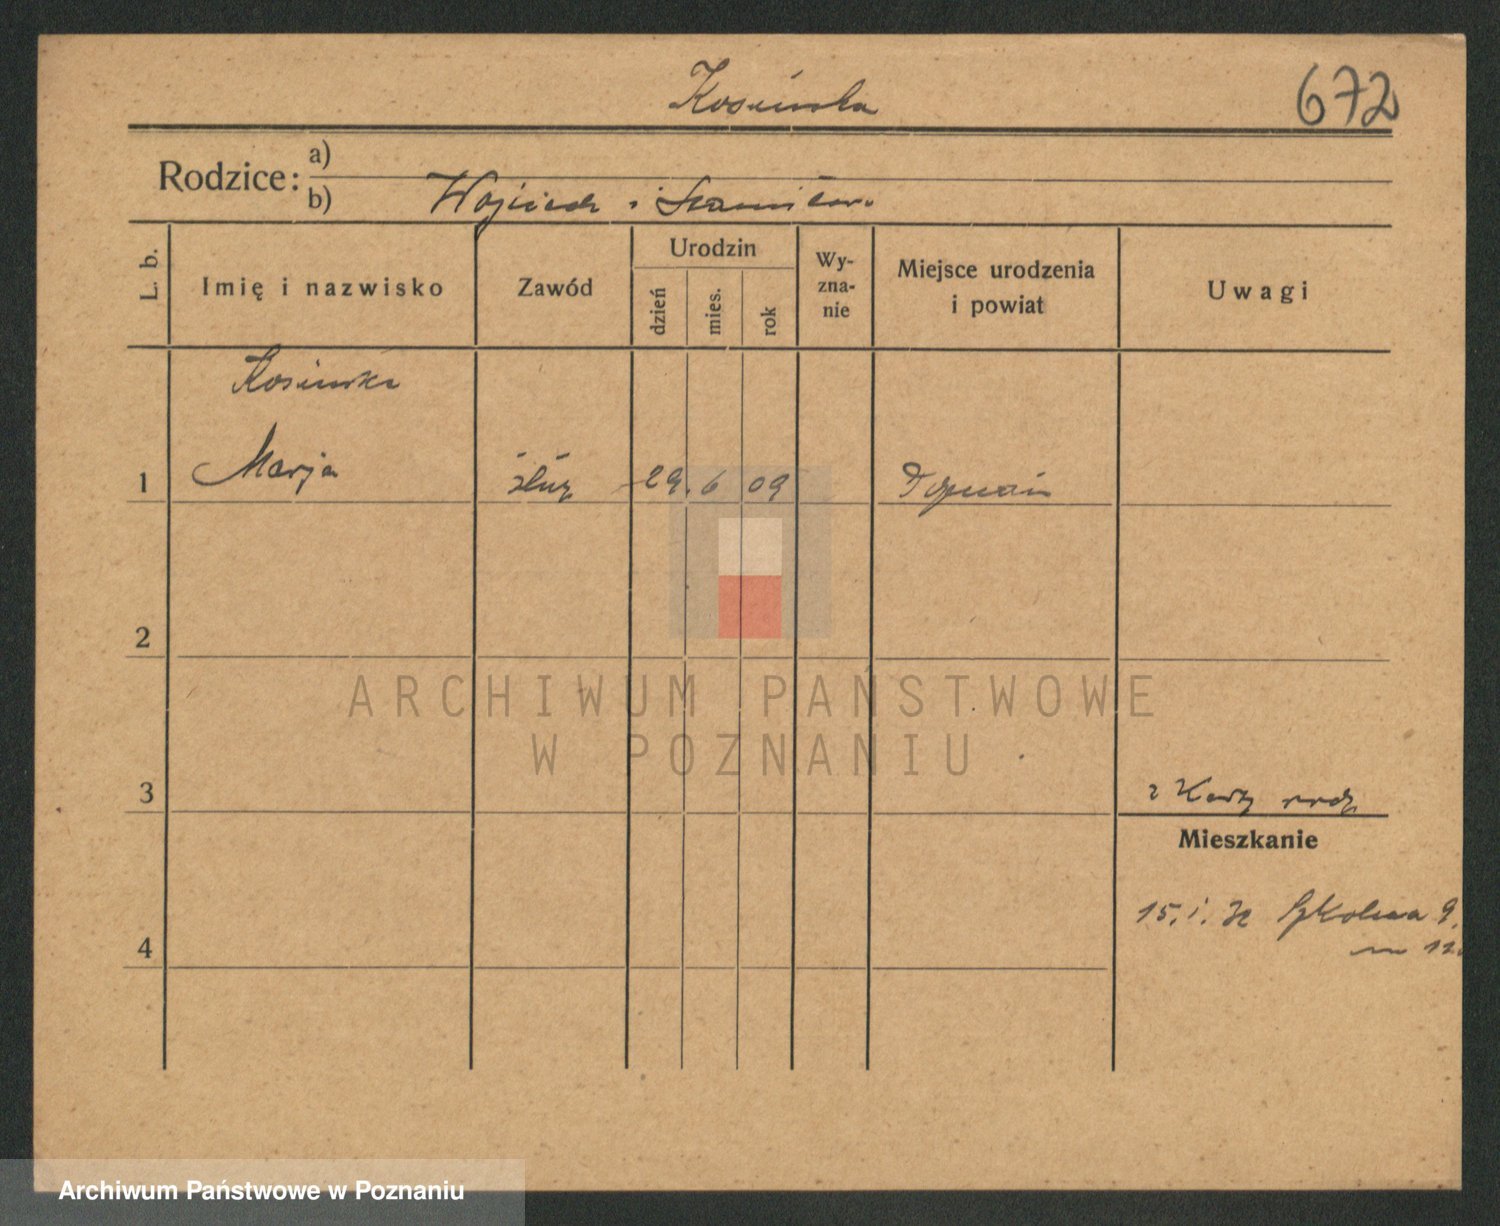 Kosińska
672
Rodzice:
a)
b) Wojciech i Stanisława
L. b.
Imię i nazwisko
Zawód
Urodzin
dzień
mies.
rok
Wy-
zna-
nie
Miejsce urodzenia
i powiat
Uwagi
Kosińska
1 Marja służ 29. 6 09 Poznań
2
ARCHIWUM PAŃSTWOWE
W POZNANIU
3
z Karty rodz.
Mieszkanie
15. I. 32 Szkolna 9.
m 12.
4
Archiwum Państwowe w Poznaniu